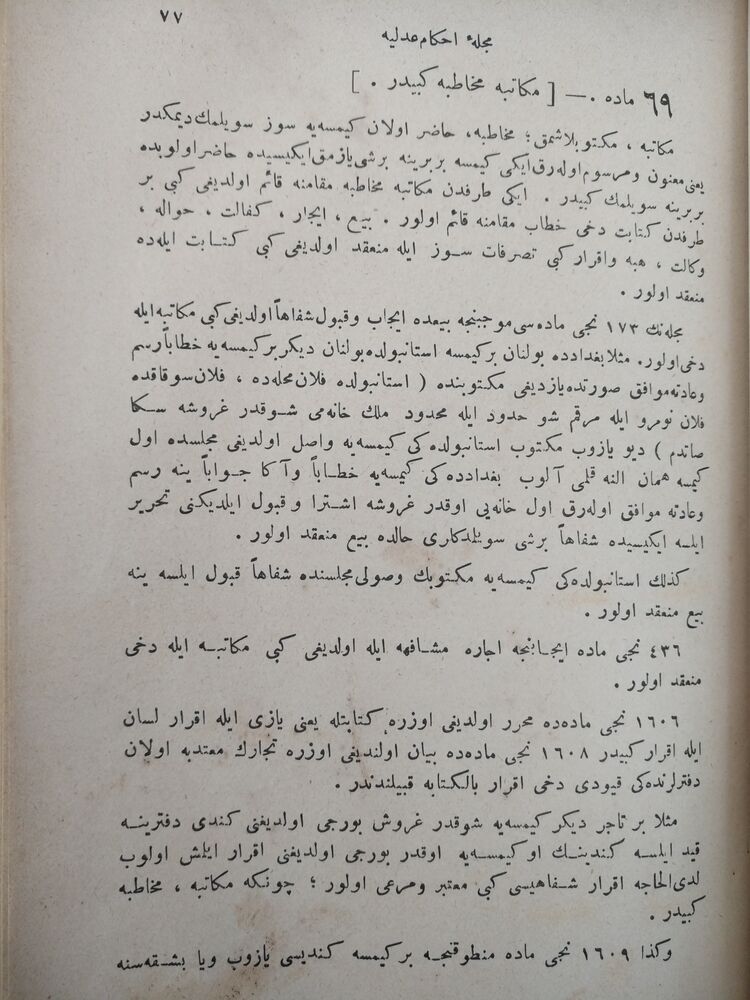 ٧٧
مجلهٔ احكام عدليه
٦٩ ماده . — [ مكاتبه مخاطبه كبيدر . ]
مكاتبه ، مكتوبلاشمق ؛ مخاطبه، حاضر اولان كيمسه‌يه سوز سويلمك ديمكدر
يعنى معنون ومرسوم اوله‌رق ايكى كيمسه بربرينه برشى يازمق ايكيسيده حاضر اولوبده
بربرينه سويلمك كبيدر . ايكى طرفدن مكاتبه مخاطبه مقامنه قائم اولديغى كبى بر
طرفدن كتابت دخى خطاب مقامنه قائم اولور . بيع ، ايجار ، كفالت ، حواله ،
وكالت ، هبه واقرار كبى تصرفات سوز ايله منعقد اولديغى كبى كتابت ايله‌ده
منعقد اولور .
مجله‌نك ١٧٣ نجى ماده‌سى موجبنجه بيعده ايجاب وقبول شفاهاً اولديغى كبى مكاتبه ايله
دخى اولور. مثلا بغدادده بولنان بركيمسه استانبولده بولنان ديكر بركيمسه‌يه خطاباً رسم
وعادته موافق صورتده يازديغى مكتوبنده ( استانبولده فلان محله‌ده ، فلان سوقاقده
فلان نومرو ايله مرقم شو حدود ايله محدود ملك خانه‌مى شوقدر غروشه سكا
صاتدم ) ديو يازوب مكتوب استانبولده‌كى كيمسه‌يه واصل اولديغى مجلسده اول
كيمسه همان النه قلمى آلوب بغدادده‌كى كيمسه‌يه خطاباً وآكا جواباً ينه رسم
وعادته موافق اوله‌رق اول خانه‌يى اوقدر غروشه اشترا وقبول ايلديكنى تحرير
ايلسه ايكيسيده شفاهاً برشى سويلدكارى حالده بيع منعقد اولور .
كذلك استانبولده‌كى كيمسه‌يه مكتوبك وصولى مجلسنده شفاهاً قبول ايلسه ينه
بيع منعقد اولور .
٤٣٦ نجى ماده ايجابنجه اجاره مشافهه ايله اولديغى كبى مكاتبه ايله دخى
منعقد اولور .
١٦٠٦ نجى ماده‌ده محرر اولديغى اوزره كتابتله يعنى يازى ايله اقرار لسان
ايله اقرار كبيدر ١٦٠٨ نجى ماده‌ده بيان اولنديغى اوزره تجارك معتدبه اولان
دفترلرنده‌كى قيودى دخى اقرار بالكتابه قبيلندندر .
مثلا بر تاجر ديكر كيمسه‌يه شوقدر غروش بورجى اولديغنى كندى دفترينه
قيد ايلسه كندينك او كيمسه‌يه اوقدر بورجى اولديغنى اقرار ايلمش اولوب
لدى الحاجه اقرار شفاهيسى كبى معتبر ومرعى اولور ؛ چونكه مكاتبه ، مخاطبه
كبيدر .
وكذا ١٦٠٩ نجى ماده منطوقنجه بركيمسه كنديسى يازوب ويا بشقه‌سنه